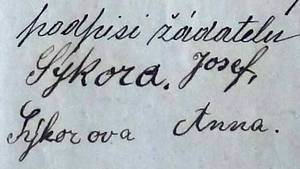 podpisi žádatelu
Sýkora, Josef,
Sýkorova Anna.